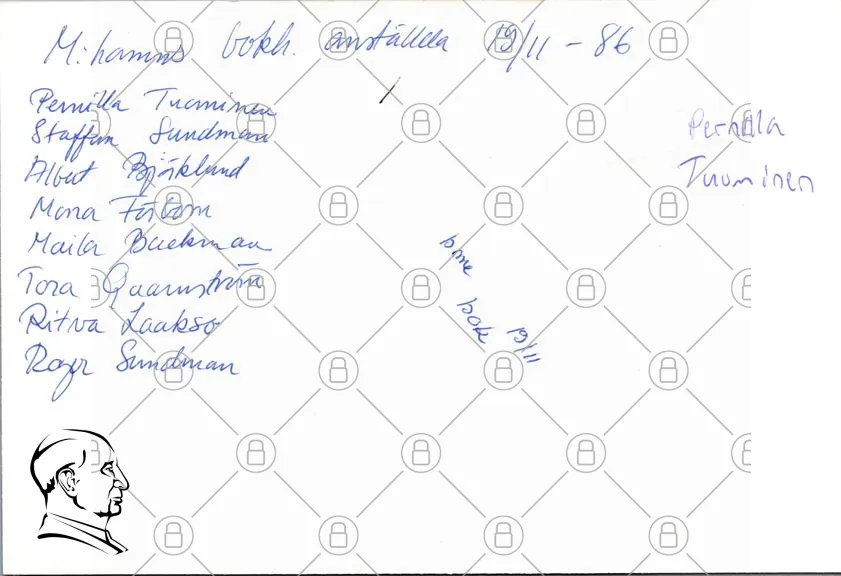 M:hamns bokh. anställda 19/11 - 86
Pernilla Tuominen
Staffan Sundman
Albert Björklund
Mona Forbom
Maila Backman
Tora Quarnström
Ritva Laakso
Roger Sundman
Pernilla
Tuominen
bok 19/11